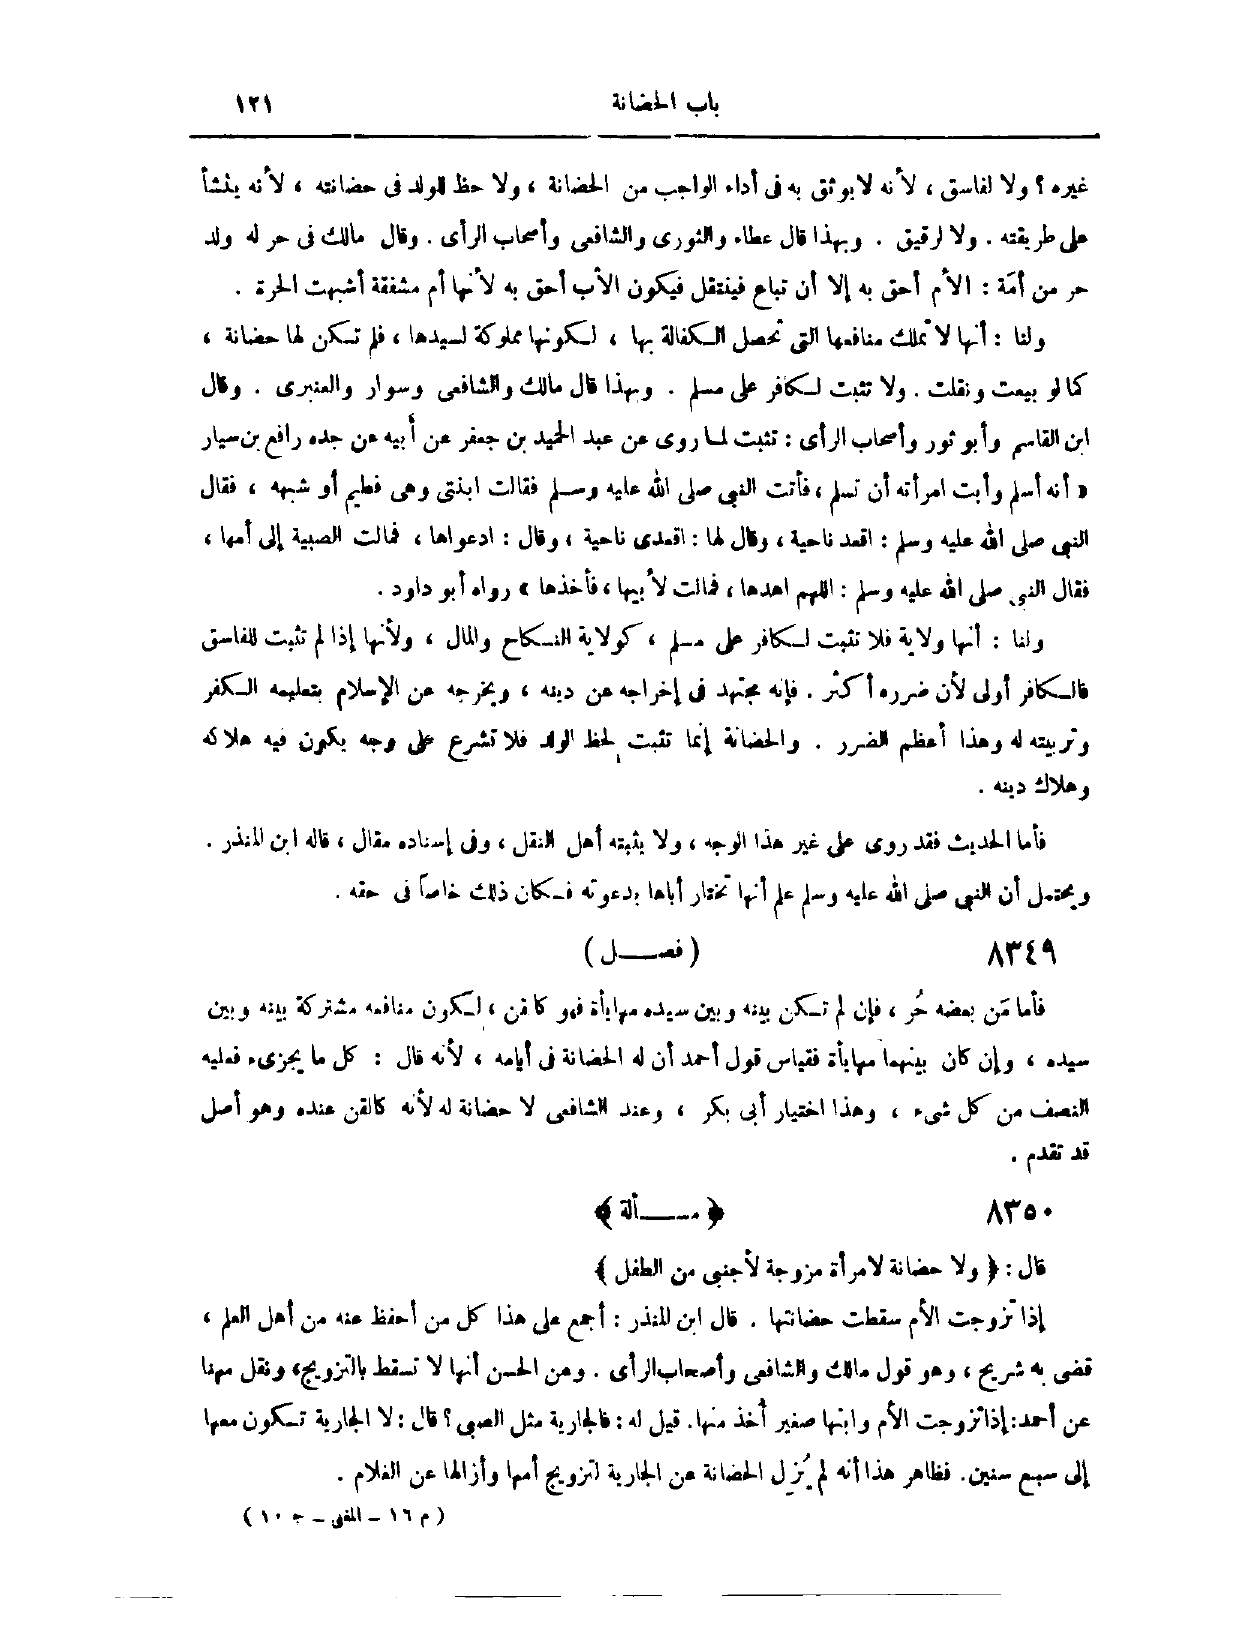 باب الحضانة ١٢١
غيره؟ ولا لفاسق ، لأنه لا يوثق به فى أداء الواجب من الحضانة ، ولا حظ للولد فى حضانته ، لأنه ينشأ
على طريقته . ولا لرقيق . وبهذا قال عطاء والثورى والشافعى وأصحاب الرأى . وقال مالك فى حر له ولد
حر من أمَة : الأم أحق به إلا أن تباع فينتقل فيكون الأب أحق به لأنها أم مشفقة أشبهت الحرة .
ولنا : أنها لا تملك منافعها التى تحصل الكفالة بها ، لكونها مملوكة لسيدها ، فلم تكن لها حضانة ،
كما لو بيعت ونقلت . ولا تثبت لكافر على مسلم . وبهذا قال مالك والشافعى وسوار والعنبرى . وقال
ابن القاسم وأبو ثور وأصحاب الرأى : تثبت لما روى عن عبد الحميد بن جعفر عن أبيه عن جده رافع بن سيار
« أنه أسلم وأبت امرأته أن تسلم ، فأتت النبى صلى الله عليه وسلم فقالت ابنتى وهى فطيم أو شبهه ، فقال
النبى صلى الله عليه وسلم : اقعد ناحية ، وقال لها : اقعدى ناحية ، وقال : ادعواها ، فمالت الصبية إلى أمها ،
فقال النبى صلى الله عليه وسلم : اللهم اهدها ، فمالت لأبيها ، فأخذها » رواه أبو داود .
ولنا : أنها ولاية فلا تثبت لكافر على مسلم ، كولاية النكاح والمال ، ولأنها إذا لم تثبت للفاسق
فالكافر أولى لأن ضرره أكثر . فإنه يجتهد فى إخراجه عن دينه ، ويخرجه عن الإسلام بتعليمه الكفر
وتربيته له وهذا أعظم الضرر . والحضانة إنما تثبت لحظ الولد فلا تشرع على وجه يكون فيه هلاكه
وهلاك دينه .
فأما الحديث فقد روى على غير هذا الوجه ، ولا يثبته أهل النقل ، وفى إسناده مقال ، قاله ابن المنذر .
ويحتمل أن النبى صلى الله عليه وسلم علم أنها تختار أباها بدعوته فكان ذلك خاصاً فى حقه .
٨٣٤٩ ( فصــل )
فأما مَن بعضه حُر ، فإن لم تكن بينه وبين سيده مهايأة فهو كالقن ، لكون منافعه مشتركة بينه وبين
سيده ، وإن كان بينهما مهايأة فقياس قول أحمد أن له الحضانة فى أيامه ، لأنه قال : كل ما يجزىء فعليه
النصف من كل شىء ، وهذا اختيار أبى بكر ، وعند الشافعى لا حضانة له لأنه كالقن عنده وهو أصل
قد تقدم .
٨٣٥٠ ﴿ مســـألة ﴾
قال : ﴿ ولا حضانة لامرأة مزوجة لأجنبى من الطفل ﴾
إذا تزوجت الأم سقطت حضانتها . قال ابن المنذر : أجمع على هذا كل من أحفظ عنه من أهل العلم ،
قضى به شريح ، وهو قول مالك والشافعى وأصحاب الرأى . وعن الحسن أنها لا تسقط بالتزويج، ونقل مهنا
عن أحمد: إذا تزوجت الأم وابنها صغير أُخذ منها. قيل له : فالجارية مثل الصبى ؟ قال : لا الجارية تكون معها
إلى سبع سنين. فظاهر هذا أنه لم يُزل الحضانة عن الجارية لتزويج أمها وأزالها عن الغلام .
( م ١٦ – المغنى – ج ١٠ )